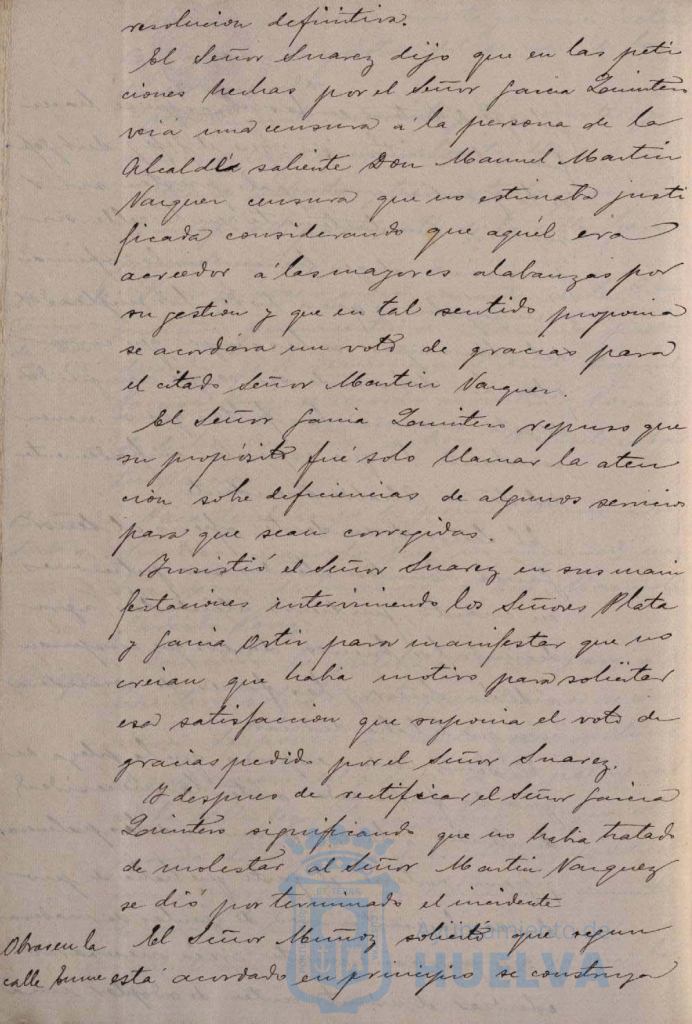 resolucion definitiva.
El Señor Suarez dijo que en las peti
ciones hechas por el Señor Garcia Quintero
veia una censura á la persona de la
Alcaldía saliente Don Manuel Martin
Vazquez censura que no estimaba justi
ficada considerando que aquél era
acreedor á las mayores alabanzas por
su gestion y que en tal sentido proponia
se acordára un voto de gracias para
el citado Señor Martin Vazquez.
El Señor Garcia Quintero repuso que
su propósito fué solo llamar la aten
cion sobre deficiencias de algunos servicios
para que sean corregidas.
Insistió el Señor Suarez en sus mani
festaciones interviniendo los Señores Plata
y Garcia Ortiz para manifestar que no
creian que habia motivo para solicitar
esa satisfaccion que suponia el voto de
gracias pedido por el Señor Suarez.
Y despues de rectificar el Señor Garcia
Quintero significando que no habia tratado
de molestar al Señor Martin Vazquez
se dió por terminado el incidente
Obras en la
calle
El Señor Muñoz solicitó que segun
está acordado en principio se construya
Ayuntamiento de
HUELVA